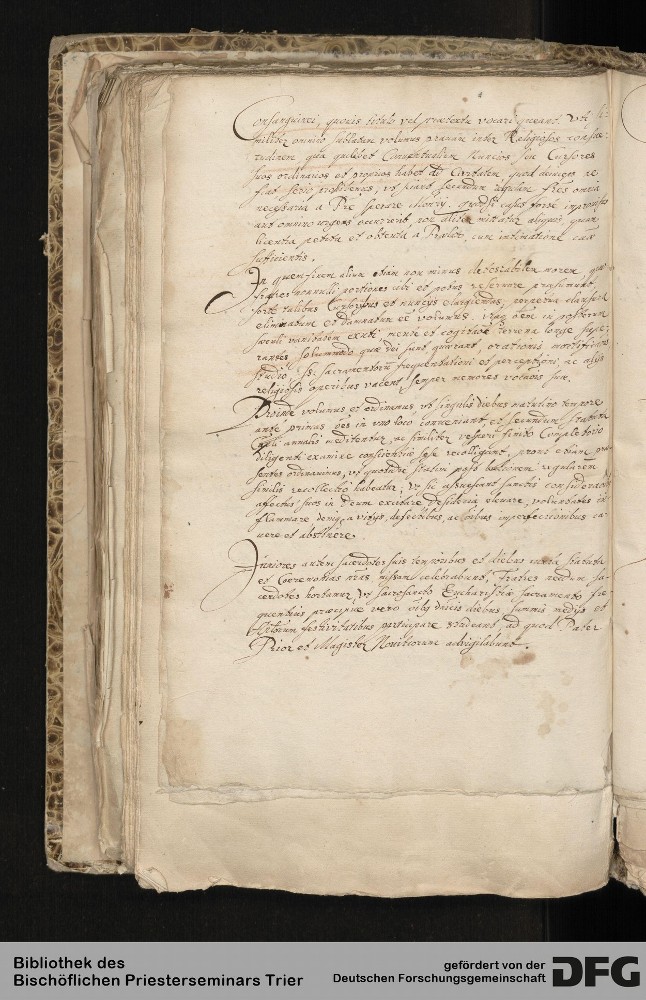 Consanguinei, quovis titulo vel praetextu vocari queant. Uti si=
militer omnino sublatam volumus pravam inter Religiosos consue=
tudinem qua quilibet Conventualium Nuncios seu Cursores
suos ordinarios et proprios habet ad Civitatem, quod deinceps ne
fiat serio prohibemus, ut fiant secundum regulam
necessaria a Pre
aut omnino urgens occurrerit
licentia petita et obtenta a Praelato, cum intimatione causae
sufficientis.
In quem finem alium etiam non minus detestabilem morem, quo
fratres nonnulli portiones cibi et potus reservare praesumunt,
forte talibus Cursoribus et nuncijs elargiendas, perpetuo
eliminatum et damnatum esse volumus. in posterum
saeculi vanitatem exuti mente et cogitatione terrena longe supe=
rantes, solummodo quae dei sunt quaerant, orationis mortificationis
studio, SS. Sacramentorum frequentationi et perceptioni, ac alijs
religiosis operibus vacent semper memores vocationis suae.
Proinde volumus et ordinamus ut singulis diebus matutino tempore
ante primas oes in uno loco conveniant, et secundum statuta
Capli annalis meditentur, ac similiter vesperi finito Completorio
diligenti examine conscientiae sese recolligant, prout etiam prae=
sentes ordinamus, ut quotidie statim post lectionem regularem
similis recollectio habeatur, ut sic assuescant sanctis consideraonibus
affectus suos in Deum excitare desideria elevare, voluntates in=
flammare denique a vitijs, defectibus, ac oibus imperfectionibus ca=
vere et abstinere.
Juniores autem sacerdotes suis temporibus et diebus iuxta statuta
et Coeremonias nras missam celebrabunt, Fratres necdum sa=
cerdotes hortamur, ut sacrosancto Eucharistiae sacramento fre=
quentius praecipue vero oibus dnicis diebus summis medijs et
festivitatibus participare studeant, ad quod Pater
Prior et Magister Novitiorum advigilabunt.
Bibliothek des
Bischöflichen Priesterseminars Trier
gefördert von der
Deutschen Forschungsgemeinschaft
DFG